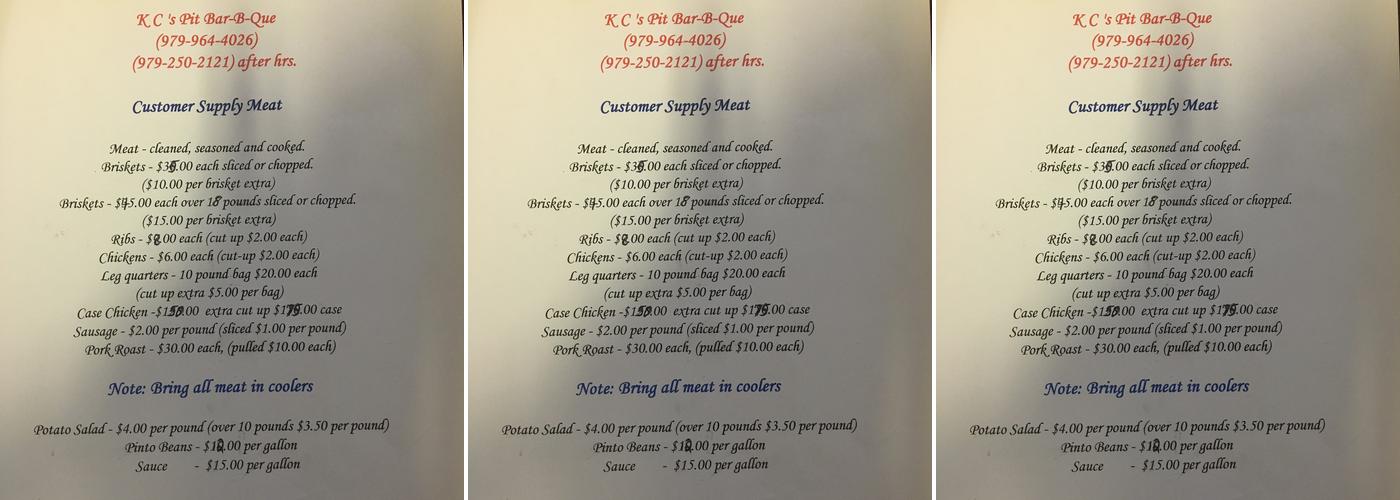 K C 's Pit Bar-B-Que
(979-964-4026)
(979-250-2121) after hrs.
Customer Supply Meat
Meat - cleaned, seasoned and cooked.
Briskets - $35.00 each sliced or chopped.
($10.00 per brisket extra)
Briskets - $45.00 each over 18 pounds sliced or chopped.
($15.00 per brisket extra)
Ribs - $8.00 each (cut up $2.00 each)
Chickens - $6.00 each (cut-up $2.00 each)
Leg quarters - 10 pound bag $20.00 each
(cut up extra $5.00 per bag)
Case Chicken - extra cut up case
Sausage - $2.00 per pound (sliced $1.00 per pound)
Pork Roast - $30.00 each, (pulled $10.00 each)
Note: Bring all meat in coolers
Potato Salad - $4.00 per pound (over 10 pounds $3.50 per pound)
Pinto Beans - per gallon
Sauce - $15.00 per gallon
K C 's Pit Bar-B-Que
(979-964-4026)
(979-250-2121) after hrs.
Customer Supply Meat
Meat - cleaned, seasoned and cooked.
Briskets - $35.00 each sliced or chopped.
($10.00 per brisket extra)
Briskets - $45.00 each over 18 pounds sliced or chopped.
($15.00 per brisket extra)
Ribs - $8.00 each (cut up $2.00 each)
Chickens - $6.00 each (cut-up $2.00 each)
Leg quarters - 10 pound bag $20.00 each
(cut up extra $5.00 per bag)
Case Chicken - extra cut up case
Sausage - $2.00 per pound (sliced $1.00 per pound)
Pork Roast - $30.00 each, (pulled $10.00 each)
Note: Bring all meat in coolers
Potato Salad - $4.00 per pound (over 10 pounds $3.50 per pound)
Pinto Beans - per gallon
Sauce - $15.00 per gallon
K C 's Pit Bar-B-Que
(979-964-4026)
(979-250-2121) after hrs.
Customer Supply Meat
Meat - cleaned, seasoned and cooked.
Briskets - $35.00 each sliced or chopped.
($10.00 per brisket extra)
Briskets - $45.00 each over 18 pounds sliced or chopped.
($15.00 per brisket extra)
Ribs - $8.00 each (cut up $2.00 each)
Chickens - $6.00 each (cut-up $2.00 each)
Leg quarters - 10 pound bag $20.00 each
(cut up extra $5.00 per bag)
Case Chicken - extra cut up case
Sausage - $2.00 per pound (sliced $1.00 per pound)
Pork Roast - $30.00 each, (pulled $10.00 each)
Note: Bring all meat in coolers
Potato Salad - $4.00 per pound (over 10 pounds $3.50 per pound)
Pinto Beans - per gallon
Sauce - $15.00 per gallon